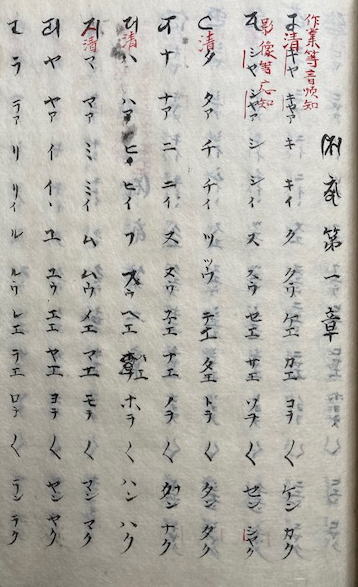 作業等音順知
影像等応知
第一章
清 キャ キャア キ キイ ク クウ ケエ カエ コヲ 〱 ケン カク
シャ シャア シ シイ ス スウ セエ サエ ソヲ 〱 セン シャク
清 タ タア チ チイ ツ ツウ テエ タエ トヲ 〱 タン タク
ナ ナア ニ ニイ ヌ ヌウ ネエ ナエ ノヲ 〱 ナン ナク
清 ハ ハア ヒ ヒイ フ フウ ヘエ ハエ ホヲ 〱 ハン ハク
清 マ マア ミ ミイ ム ムウ メエ マエ モヲ 〱 マン マク
ヤ ヤア イ イ、 ユ ユウ エエ ヤエ ヨヲ 〱 ヤン ヤク
ラ ラア リ リイ ル ルウ レエ ラエ ロヲ 〱 ラン ラク